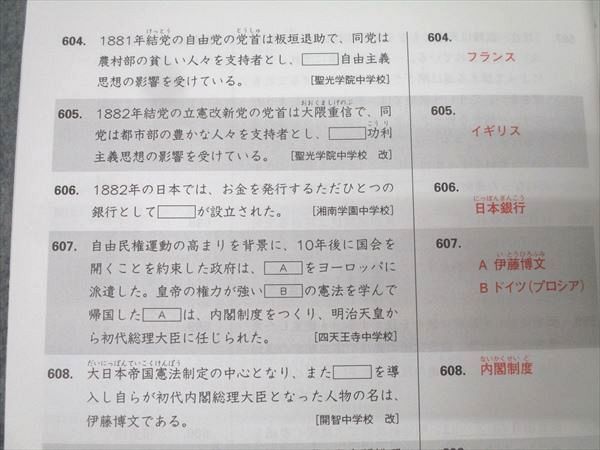 604. 1881年結党の自由党の党首は板垣退助で、同党は
けっとう とうしゅ
農村部の貧しい人々を支持者とし、 自由主義
思想の影響を受けている。 [聖光学院中学校]
605. 1882年結党の立憲改新党の党首は大隈重信で、同
おおくましげのぶ
党は都市部の豊かな人々を支持者とし、 功利
こうり
主義思想の影響を受けている。 [聖光学院中学校 改]
606. 1882年の日本では、お金を発行するただひとつの
銀行として が設立された。 [湘南学園中学校]
607. 自由民権運動の高まりを背景に、10年後に国会を
開くことを約束した政府は、 A をヨーロッパに
派遣した。皇帝の権力が強い B の憲法を学んで
帰国した A は、内閣制度をつくり、明治天皇か
ら初代総理大臣に任じられた。 [四天王寺中学校]
だいにっぽんていこくけんぽう
608. 大日本帝国憲法制定の中心となり、また を導
入し自らが初代内閣総理大臣となった人物の名は、
伊藤博文である。 [開智中学校 改]
604.
フランス
605.
イギリス
606.
にっぽんぎんこう
日本銀行
607.
いとうひろぶみ
A 伊藤博文
B ドイツ(プロシア)
608.
ないかくせいど
内閣制度